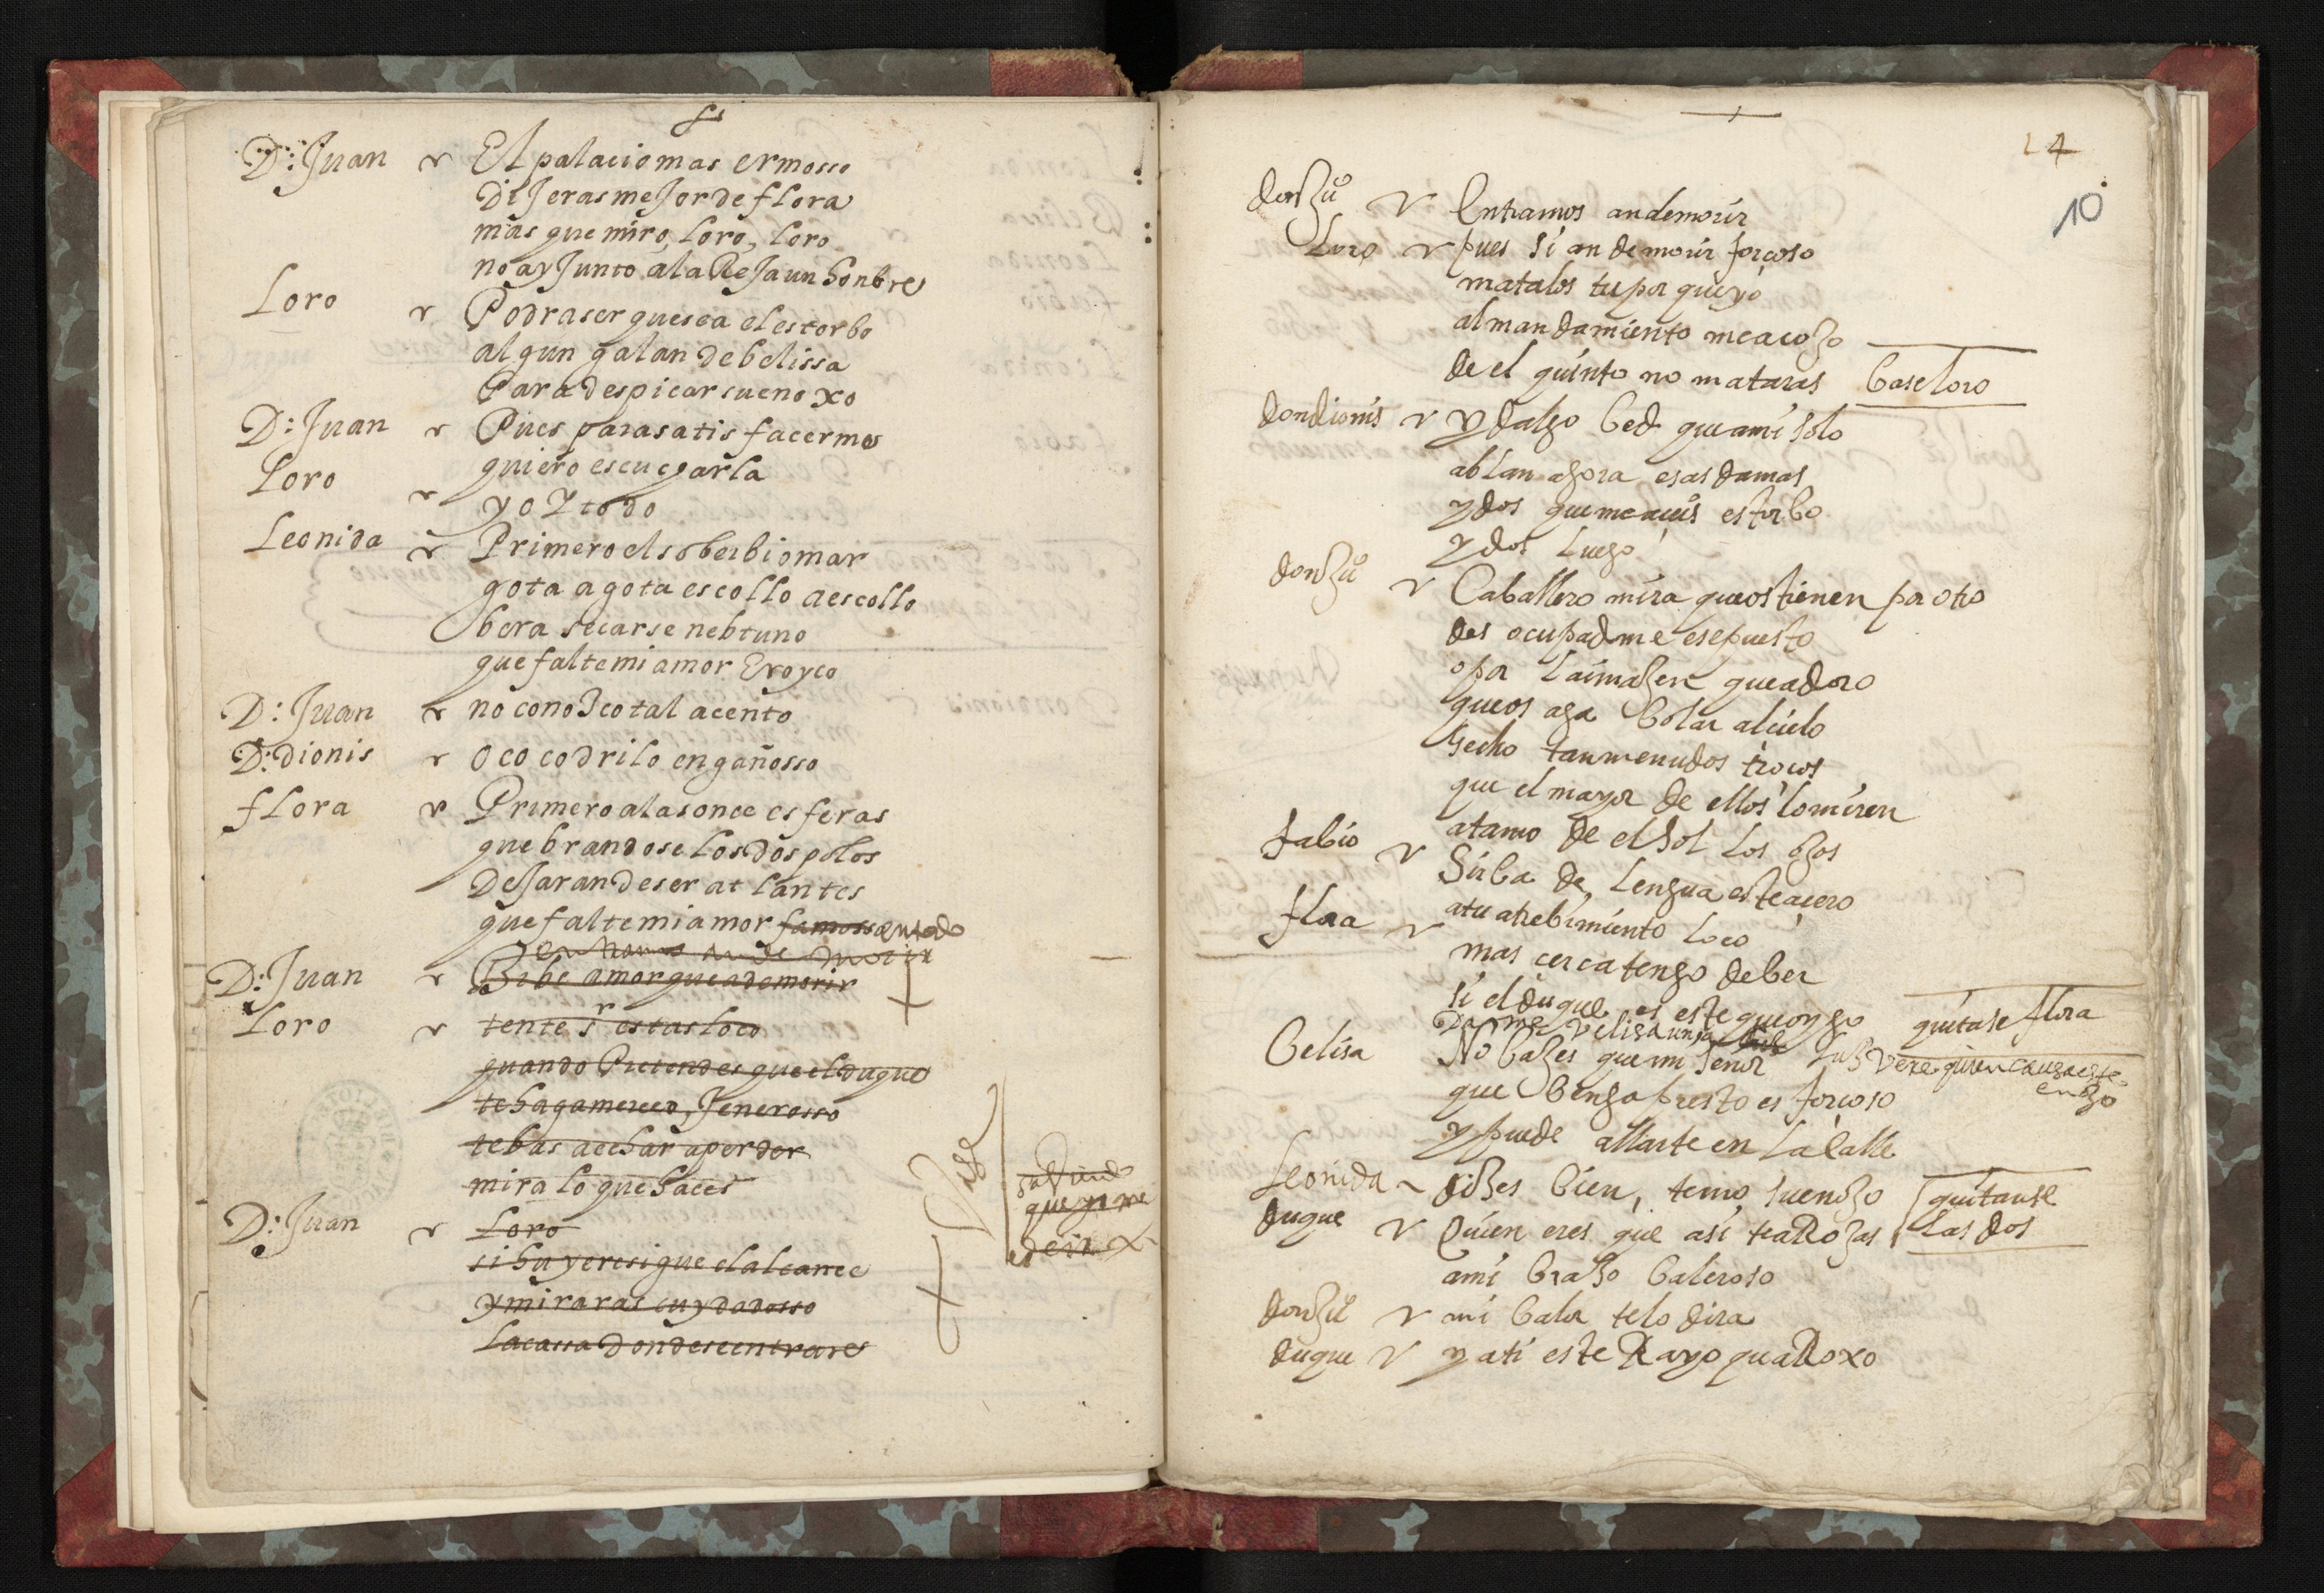 D: Juan El palacio mas ermosso
diJeras meJor de flora
mas que miro, loro, loro
no ay Junto a la ReJa un honbre
Loro Podra ser que sea el estorbo
algun galan de belissa
Para despicar su enoxo
D: Juan Pues para satisfacerme
quiero escucharla
Loro yo I todo
Leonida Primero el soberbio mar
gota a gota escollo a escollo
bera secarse nebtuno
que falte mi amor Eroyco
D: Juan no conozco tal acento
D: dionis o cocodrilo engañosso
flora Primero a las once esferas
quebrandose los dos polos
deJaran de ser atlantes
que falte mi amor famosso en todo
entramos an de morir
D: Juan Bibe amor que a de morir
Loro tente sr estas loco
quando Pretendes que el duque
te haga merced, Jenerosso
te bas a echar a perder
mira lo que haces
D: Juan Loro
si huyere sigue el alcance
y miraras cuydadosso
la cassa donde se entrare
que yo me
14
10
don Juº Entramos an de morir
Loro pues si an de morir forçoso
matalos tu por que yo
al mandamiento me acoJo
de el quinto no mataras base loro
don dionis ydalgo bed que a mi solo
ablan agora esas damas
ydos que me aceis estorbo
ydos luego
don Juº Caballero mira que os tienen por otro
desocupadme ese puesto
o por la imaJen que adoro
que os aga bolar al cielo
hecho tan menudos troços
que el mayor de ellos lo miren
atamo de el sol los oJos
fabio Sirba de lengua este acero
a tu atrebimiento loco
flora mas cerca tengo de ber
si el duque es este que oygo quitase flora
Dame velisa una luz
luz vere quien causa este
enoJo
belisa No baJes que mi señor
que benga presto es forçoso
y puede allarte en la calle
Leonida diJes bien, temo su enoJo quitanse
las dos
duque Quien eres que asi te aRoJas
a mi braJo baleroso
don Juº mi balor te lo dira
duque y a ti este Rayo que aRoxo